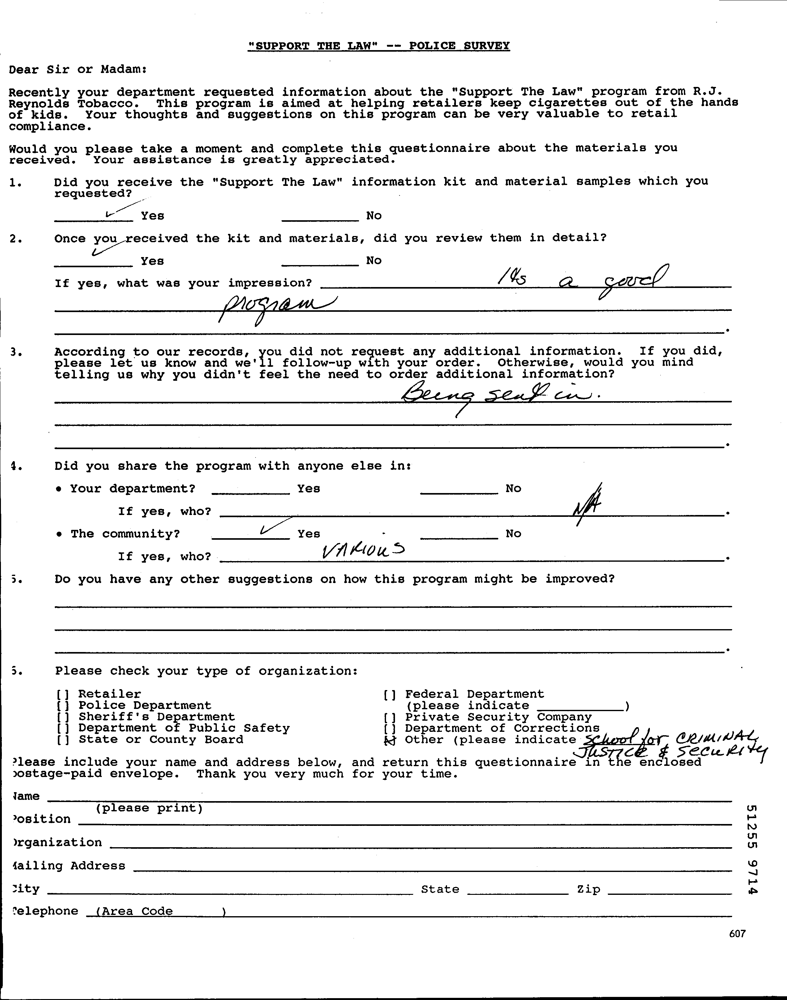 "SUPPORT THE LAW" -- POLICE SURVEY
Dear Sir or Madam:
Recently your department requested information about the "Support The Law" program from R.J.
Reynolds Tobacco. This program is aimed at helping retailers keep cigarettes out of the hands
of kids. Your thoughts and suggestions on this program can be very valuable to retail
compliance.
Would you please take a moment and complete this questionnaire about the materials you
received. Your assistance is greatly appreciated.
1. Did you receive the "Support The Law" information kit and material samples which you
requested?
✓ Yes No
2. Once you received the kit and materials, did you review them in detail?
✓ Yes No
If yes, what was your impression? It's a good
program
3. According to our records, you did not request any additional information. If you did,
please let us know and we'll follow-up with your order. Otherwise, would you mind
telling us why you didn't feel the need to order additional information?
Being sent in.
4. Did you share the program with anyone else in:
• Your department? Yes No
If yes, who? N/A
• The community? ✓ Yes No
If yes, who? VARIOUS
5. Do you have any other suggestions on how this program might be improved?
5. Please check your type of organization:
[] Retailer [] Federal Department
[] Police Department (please indicate )
[] Sheriff's Department [] Private Security Company
[] Department of Public Safety [] Department of Corrections
[] State or County Board [✓] Other (please indicate School for CRIMINAL
JUSTICE & SECURITY
Please include your name and address below, and return this questionnaire in the enclosed
postage-paid envelope. Thank you very much for your time.
Name
(please print)
Position
Organization
Mailing Address
City State Zip
Telephone (Area Code )
51255 9714
607